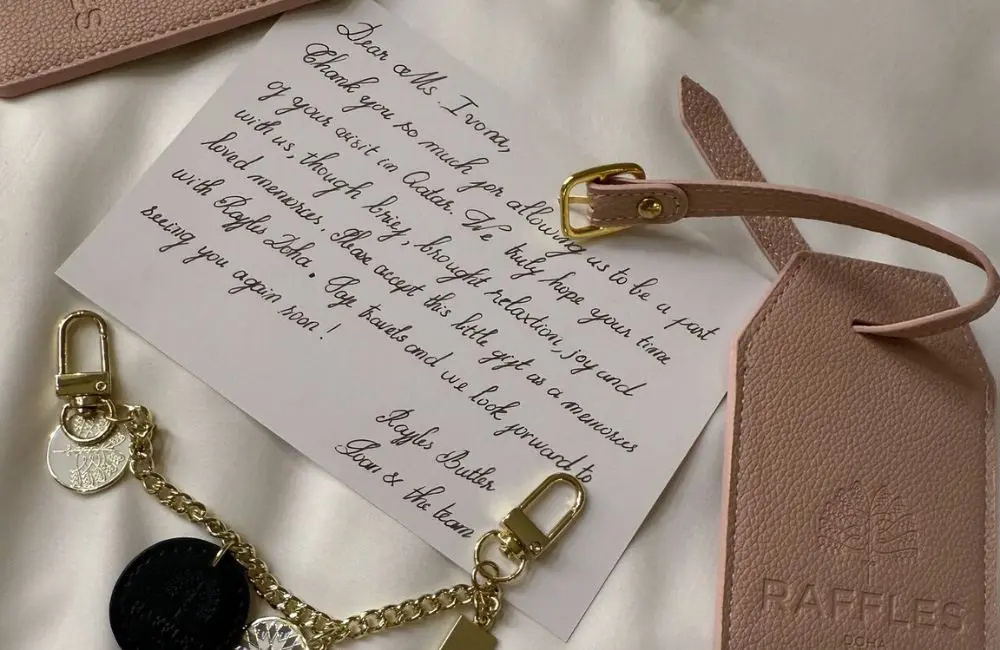 Dear Ms. Ivona,
Thank you so much for allowing us to be a part
of your visit in Qatar. We truly hope your time
with us, though brief, brought relaxtion, joy and
loved memories. Please accept this little gift as a memories
with Raffles Doha. travels and we look forward to
seeing you again soon!
Raffles Butler
& the team
RAFFLES
DOHA